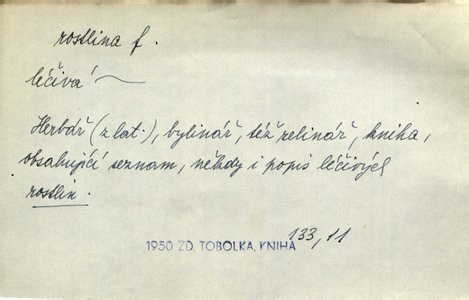 rostlina f.
léčivá ~
Herbář (z lat.), bylinář, též zelinář, kniha,
obsahující seznam, někdy i popis léčivých
rostlin.
133,11
1950 ZD. TOBOLKA, KNIHA